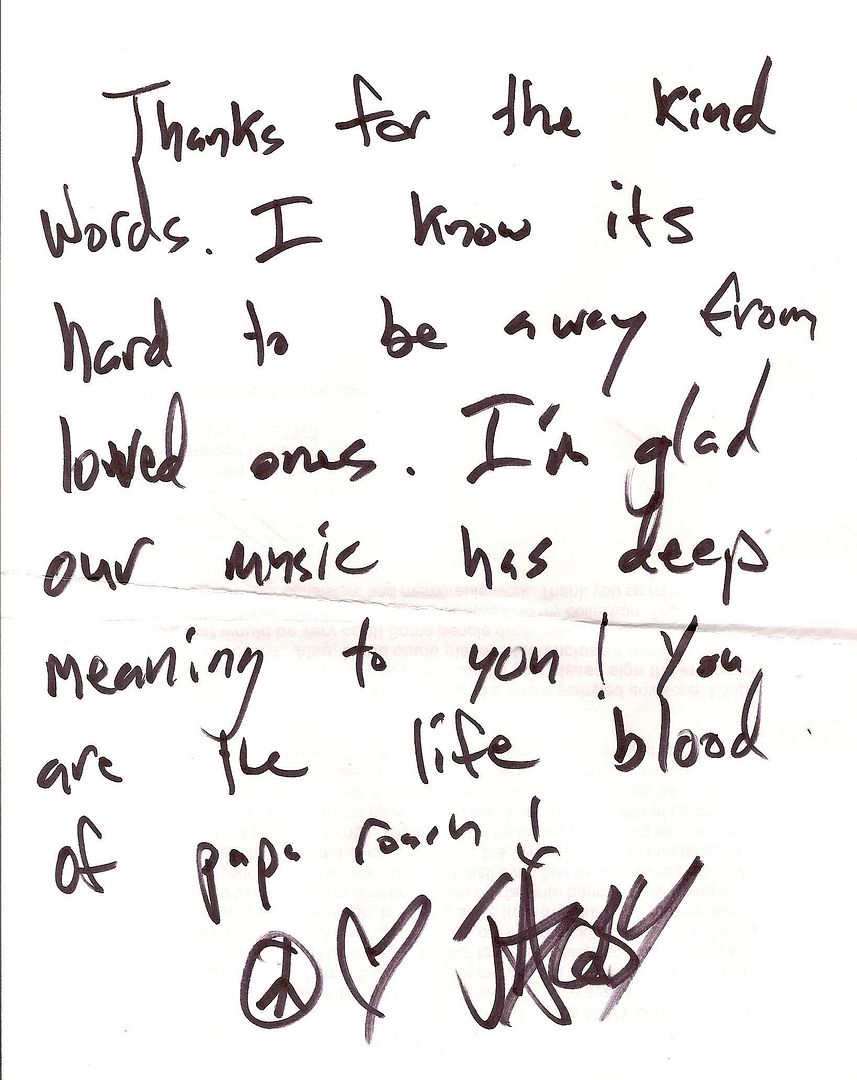 Thanks for the kind
words. I know its
hard to be away from
loved ones. I'm glad
our music has deep
meaning to you! You
are the life blood
of papa roach!